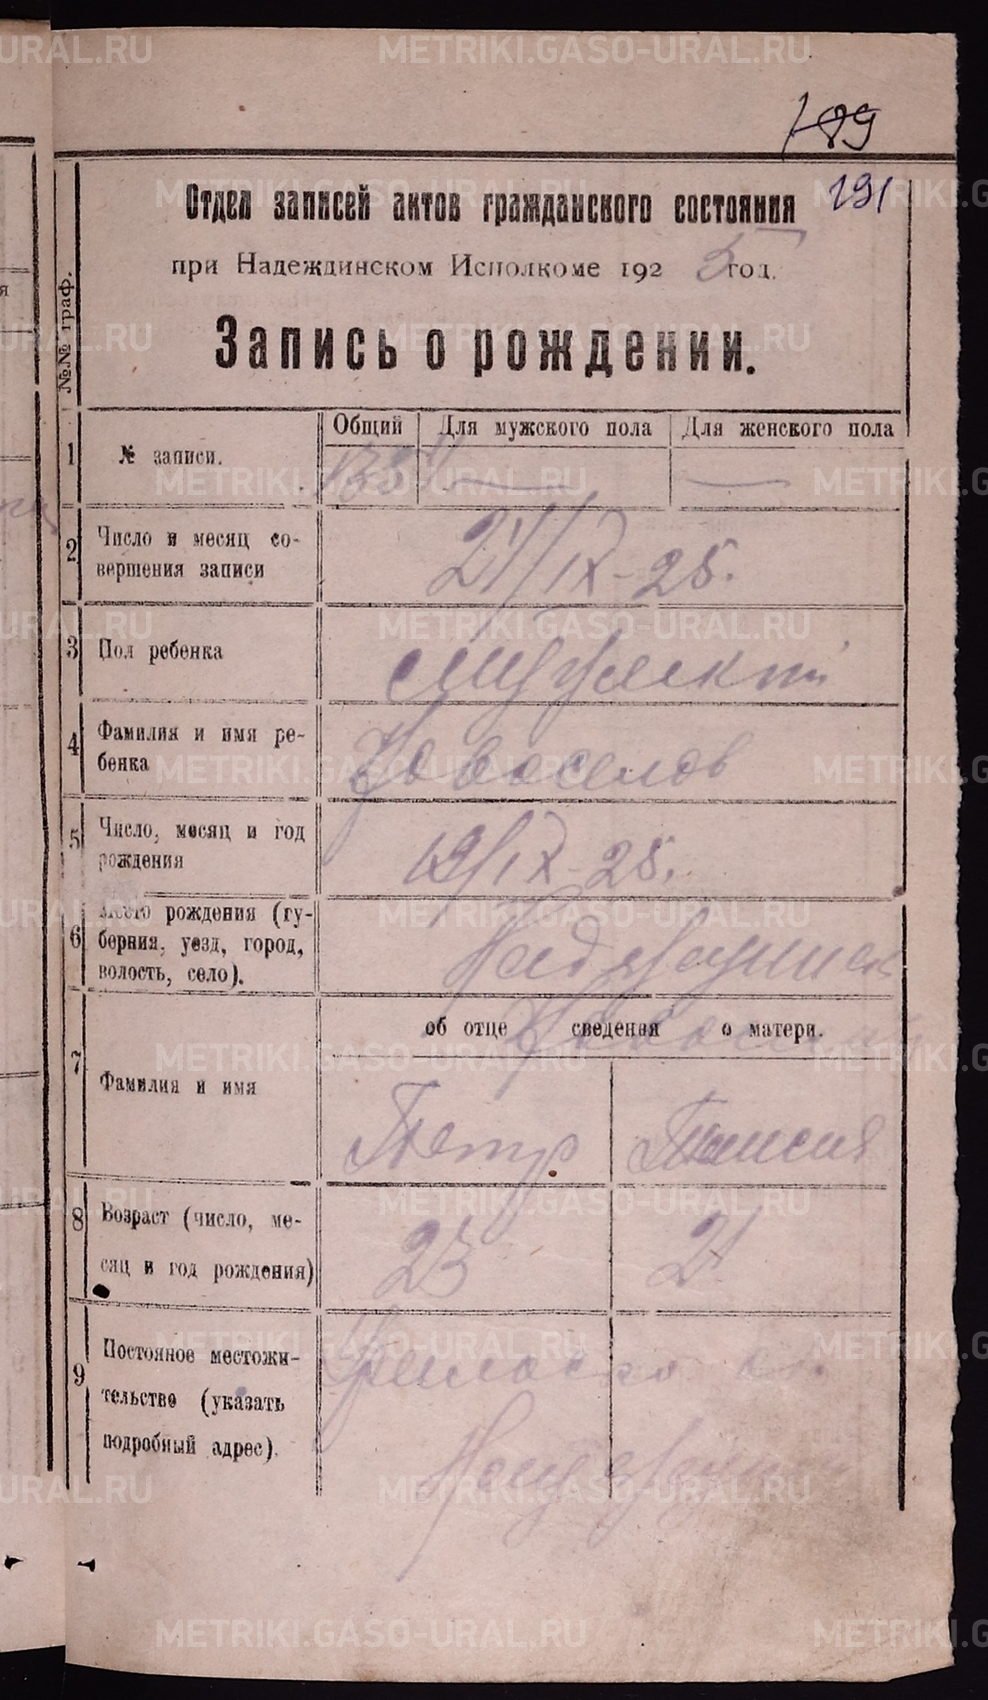 189
191
Отдел записей актов гражданского состояния
при Надеждинском Исполкоме 1925 год.
Запись о рождении.
№№ граф.
Общий Для мужского пола Для женского пола
1 № записи.
2 Число и месяц со-
вершения записи
21/IX-25.
3 Пол ребенка мужской
4 Фамилия и имя ре-
бенка
Новоселов
5 Число, месяц и год
рождения
19/IX-25.
6 Место рождения (гу-
берния, уезд, город,
волость, село).
Надеждинск
об отце сведения о матери.
7 Фамилия и имя
Петр Таисия
8 Возраст (число, ме-
сяц и год рождения)
23 21
9 Постояное местожи-
тельство (указать
подробный адрес).
METRIKI.GASO-URAL.RU